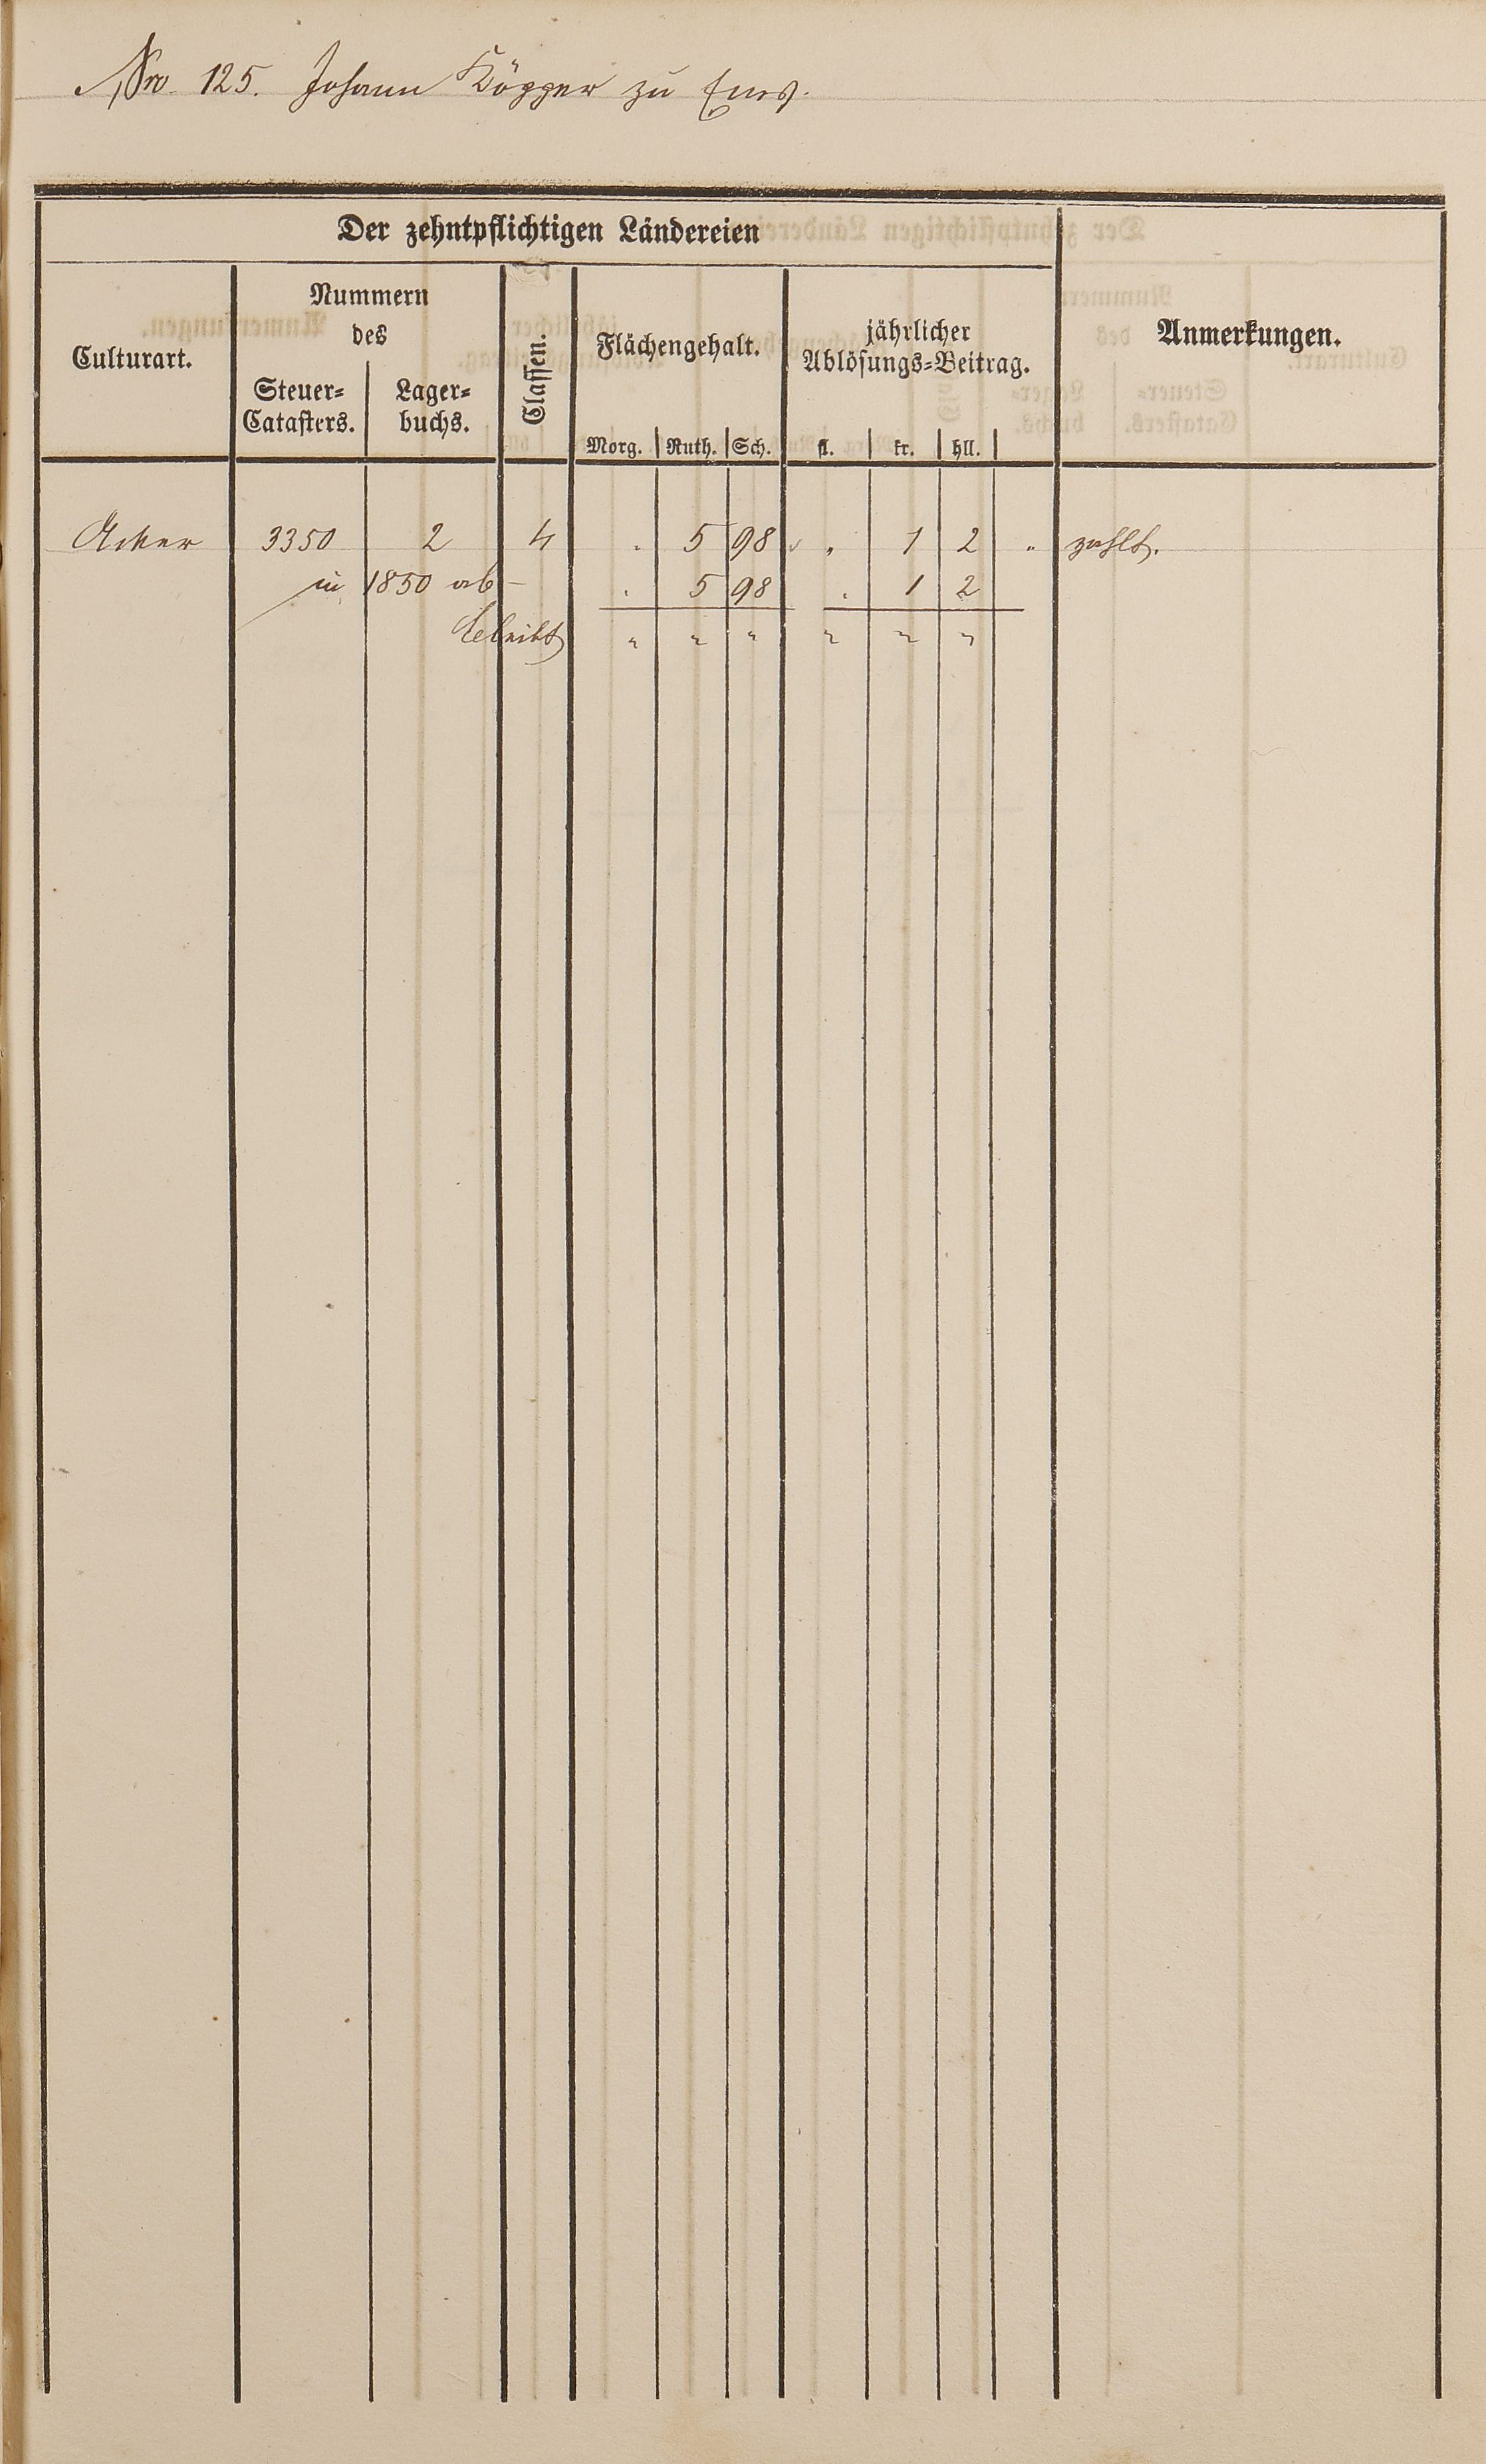 Nro. 125. Johann Kögger zu Ems.
Der zehntpflichtigen Ländereien
Culturart.
Nummern
des
Steuer-
Catasters.
Lager-
buchs.
Classen.
Flächengehalt.
Morg. Ruth. Sch.
jährlicher
Ablösungs-Beitrag.
fl. kr. hll.
Anmerkungen.
Acker 3350 2 4 . 5 98 „ 1 2 „ zahlt.
in 1850 ab – . 5 98 . 1 2
bleibt „ „ „ „ „ „